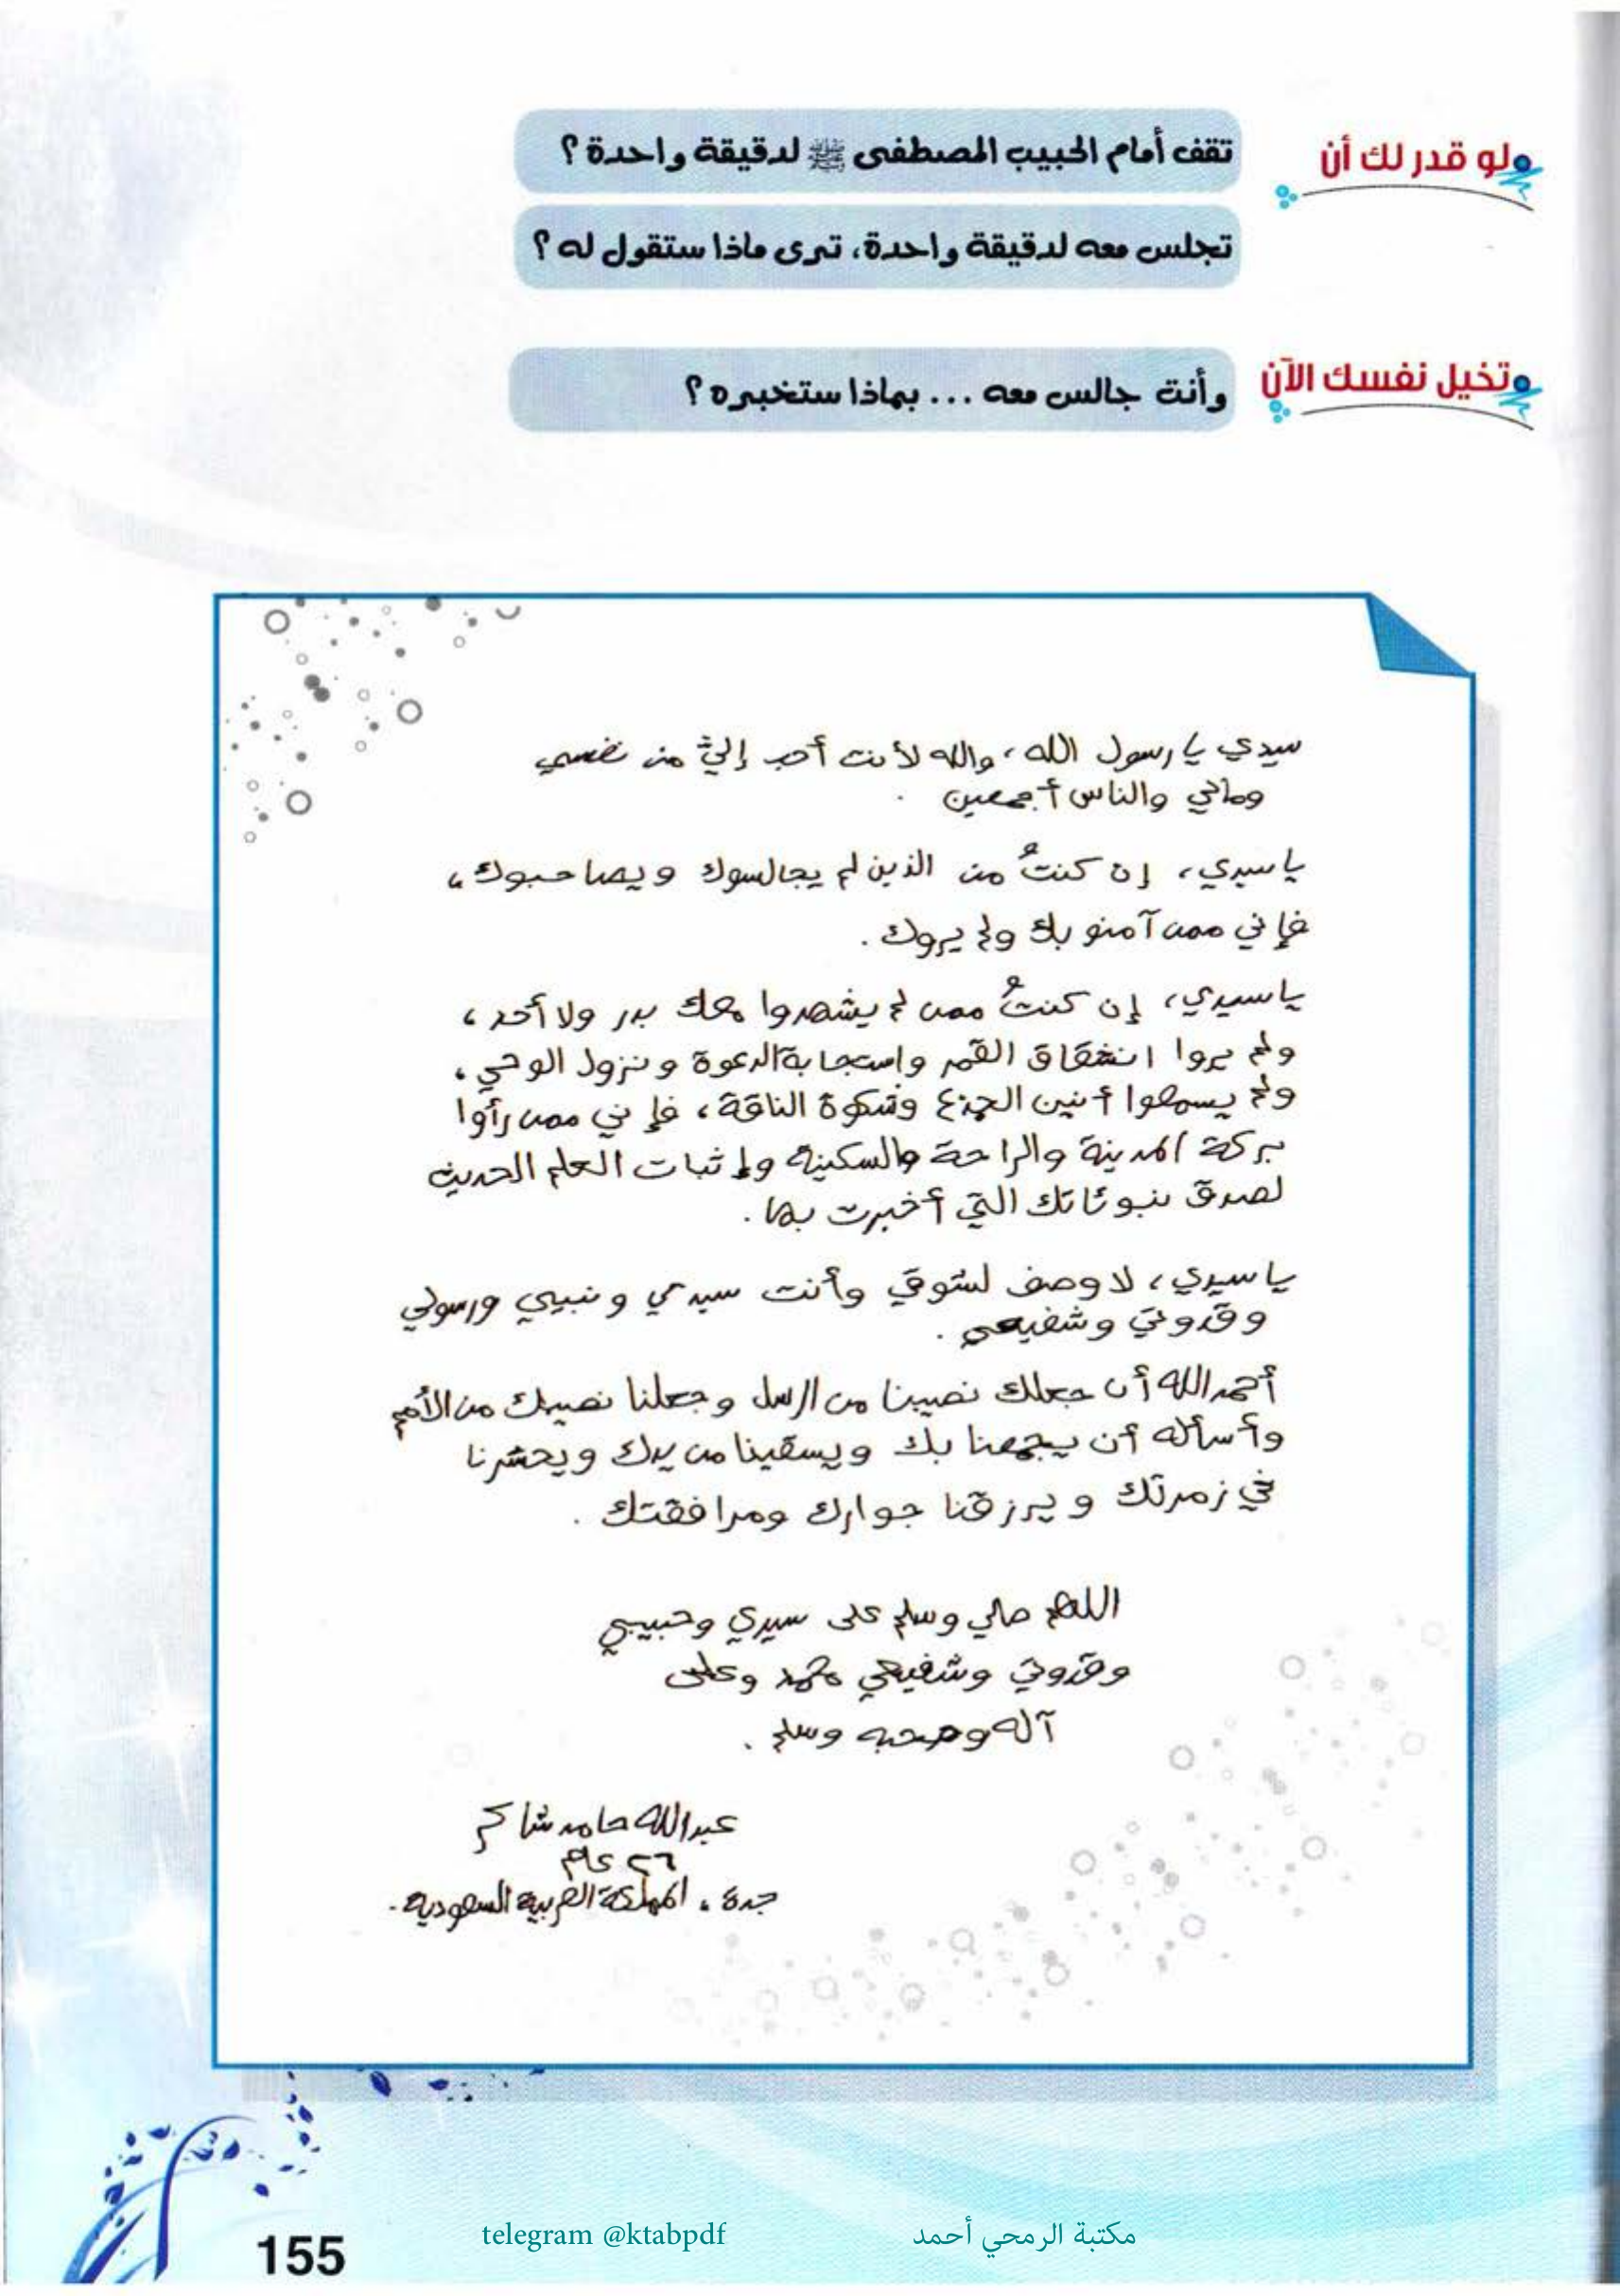 لو قدر لك أن
تقف أمام الحبيب المصطفى ﷺ لدقيقة واحدة ؟
تجلس معه لدقيقة واحدة، ترى ماذا ستقول له ؟
تخيل نفسك الآن
وأنت جالس معه ... بماذا ستخبره ؟
سيدي يا رسول الله ، والله لأنت أحب إليَّ من نفسي
ومالي والناس أجمعين .
يا سيدي ، إن كنتُ من الذين لم يجالسوك ويصاحبوك ،
فإني ممن آمنو بك ولم يروك .
يا سيدي ، إن كنتُ ممن لم يشهدوا معك بدر ولا أحد ،
ولم يروا انشقاق القمر واستجابة الدعوة ونزول الوحي ،
ولم يسمعوا أنين الجذع وشكوة الناقة ، فإني ممن رأوا
بركة المدينة والراحة والسكينة وإثبات العلم الحديث
لصدق نبوئاتك التي أخبرت بها .
يا سيدي ، لا وصف لشوقي وأنت سيدي ونبيي ورسولي
وقدوتي وشفيعي .
أحمد الله أن جعلك نصيبنا من الرسل وجعلنا نصيبك من الأمم
وأسأله أن يجمعنا بك ويسقينا من يدك ويحشرنا
في زمرتك ويرزقنا جوارك ومرافقتك .
اللهم صلي وسلم على سيدي وحبيبي
وقدوتي وشفيعي محمد وعلى
آله وصحبه وسلم .
عبدالله حامد شاكر
٢٦ عام
جدة ، المملكة العربية السعودية .
155
telegram @ktabpdf
مكتبة الرمحي أحمد